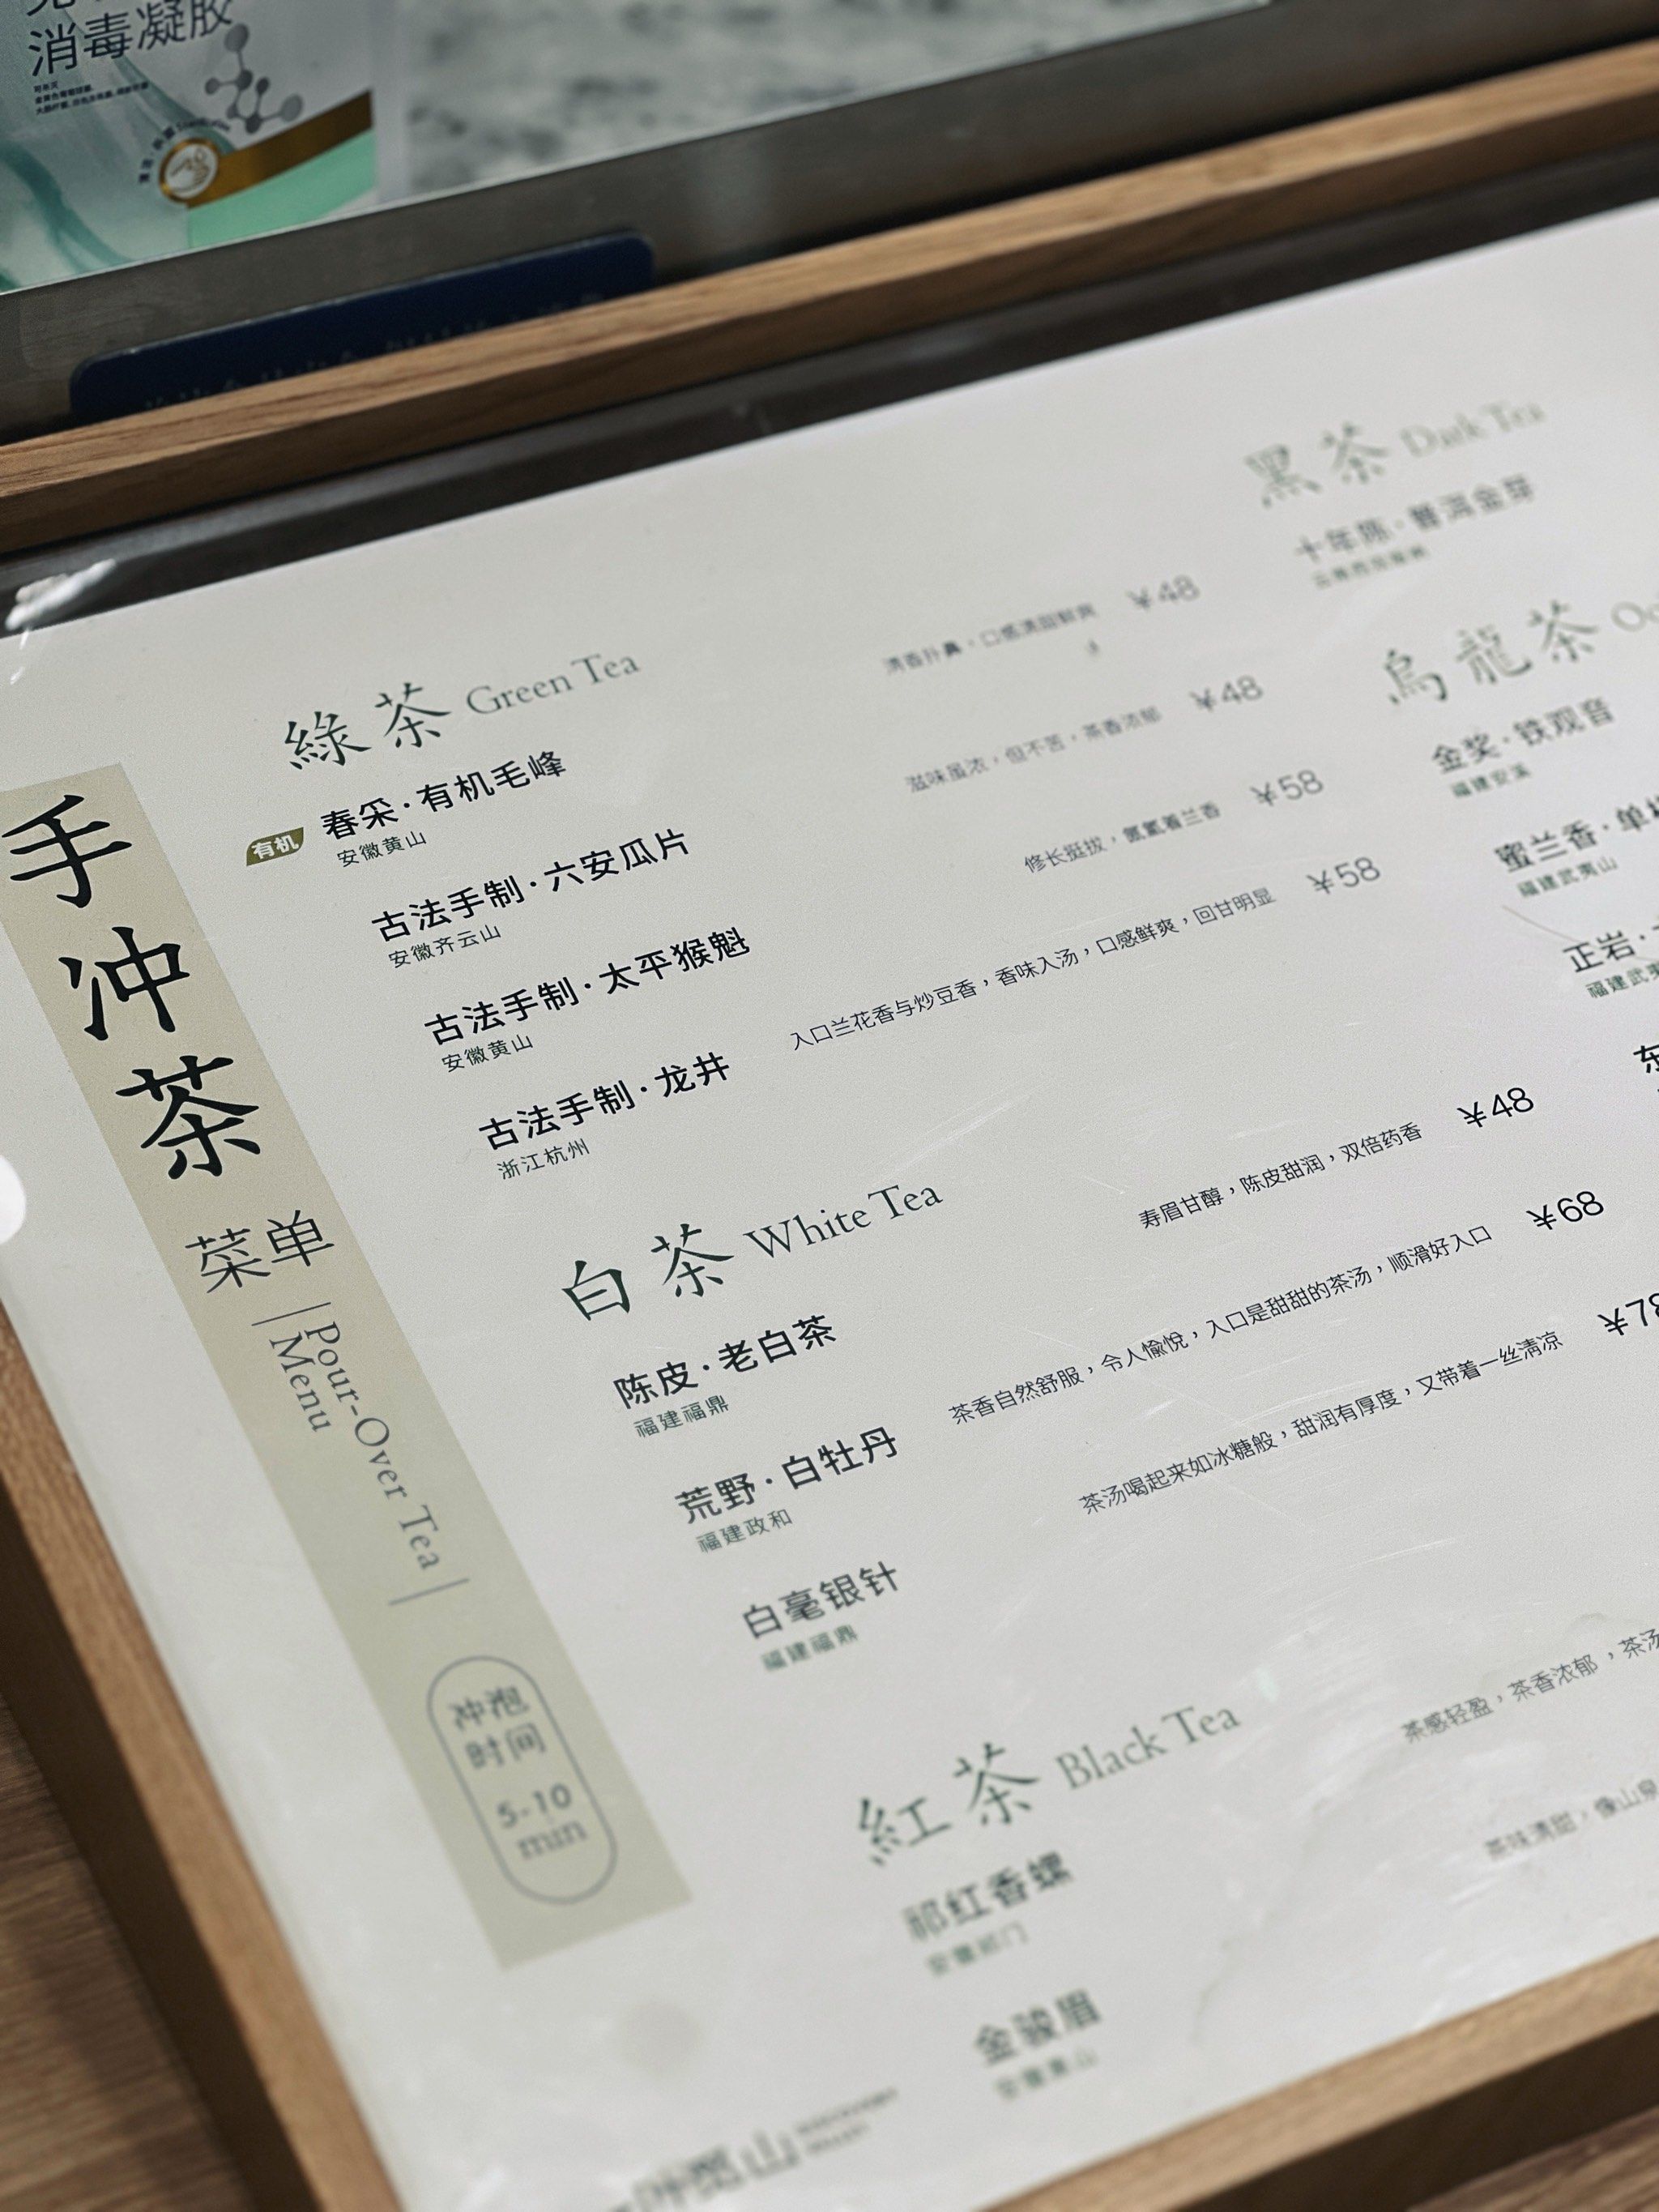 消毒凝胶
手冲茶
菜单
Pour-Over Tea
Menu
冲泡
时间
5-10
min
綠茶 Green Tea
有机 春采·有机毛峰
安徽黄山
清香扑鼻，口感清甜鲜爽 ¥48
古法手制·六安瓜片
安徽齐云山
滋味虽浓，但不苦，茶香浓郁 ¥48
古法手制·太平猴魁
安徽黄山
修长挺拔，氤氲着兰香 ¥58
古法手制·龙井
浙江杭州
入口兰花香与炒豆香，香味入汤，口感鲜爽，回甘明显 ¥58
白茶 White Tea
陈皮·老白茶
福建福鼎
寿眉甘醇，陈皮甜润，双倍药香 ¥48
荒野·白牡丹
福建政和
茶香自然舒服，令人愉悦，入口是甜甜的茶汤，顺滑好入口 ¥68
白毫银针
福建福鼎
茶汤喝起来如冰糖般，甜润有厚度，又带着一丝清凉 ¥78
紅茶 Black Tea
祁红香螺
安徽祁门
茶感轻盈，茶香浓郁，茶汤
金骏眉
茶味清甜，像山泉
黑茶 Dark Tea
十年陈·普洱金芽
烏龍茶
金奖·铁观音
福建安溪
蜜兰香·单
福建武夷山
正岩·
福建武夷